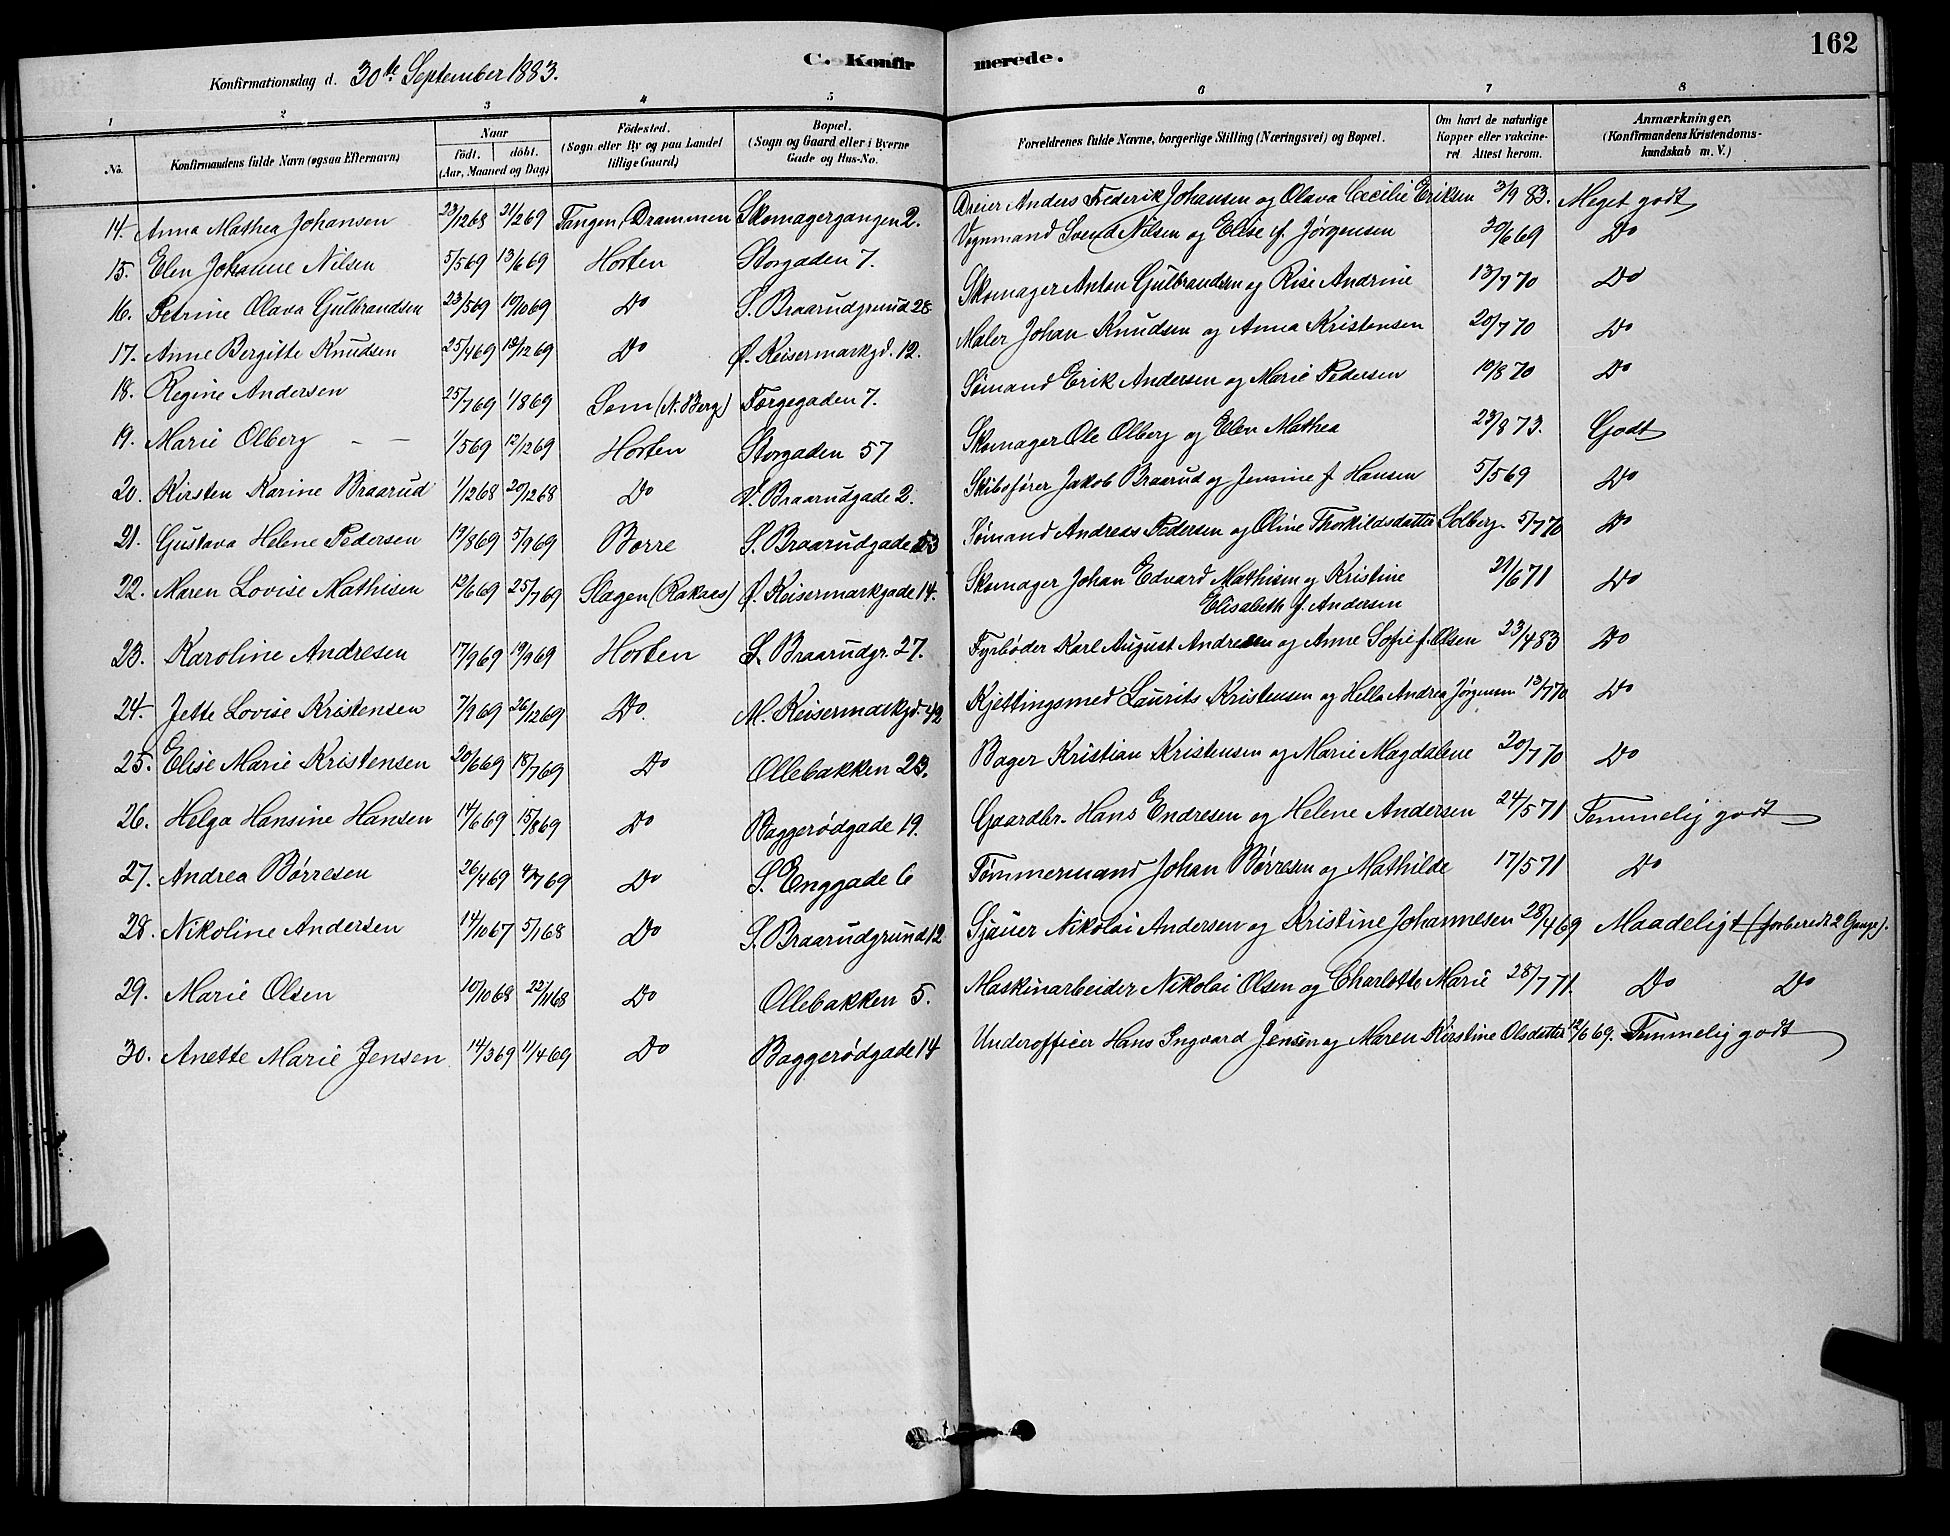 162
C. Konfirmerede.
Konfirmationsdag d. 30te September 1883.
1 2 3 4 5 6 7 8
No. Konfirmandens fulde Navn (ogsaa Efternavn) Naar födt. döbt. (Aar, Maaned og Dag) Födested. (Sogn eller By og paa Landet tillige Gaard) Bopæl. (Sogn og Gaard eller i Byerne Gade og Hus-No. Forældrenes fulde Navne, borgerlige Stilling (Næringsvei) og Bopæl. Om havt de naturlige Kopper eller vakcineret Attest herom. Anmærkninger. (Konfirmandens Kristendomskundskab m. V.)
14. Anna Mathea Johansen 23/12 68 31/1 269 Tangen (Drammen Skomagergangen 2. Dreier Anders Frederik Johansen og Olava Cæcilie Eriksen 3/9 83. Meget godt
15. Elen Johanne Nilsen 5/5 69 13/6 69 Horten Storgaden 7. Vognmand Svend Nilsen og Elise f. Jørgensen 30/6 69 Do
16. Petrine Olava Gulbrandsen 23/5 69 10/10 69 Do S. Braarudgrund 28 Skomager Anton Gulbrandsen og Rise Andrine 13/7 70 Do
17. Anne Bergitte Knudsen 25/4 69 18/12 69 Do Ø. Keisermarkgd. 12. Maler Johan Knudsen og Anna Kristensen 20/7 70 Do
18. Regine Andersen 25/7 69 1/8 69 Sem (N. Berg) Torgegaden 7. Sømand Erik Andersen og Marie Pedersen 10/8 70 Do
19. Marie Olberg – – 1/5 69 12/12 69 Horten Storgaden 57 Skomager Ole Olberg og Elen Mathea 23/8 73. Godt
20. Kirsten Karine Braarud 1/12 68 20/12 68 Do V. Braarudgade 2. Skibsfører Jakob Braarud og Jensine f. Hansen 5/5 69 Do
21. Gustava Helene Pedersen 19/8 69 5/9 69 Borre S. Braarudgade 53 Sømand Andreas Pedersen og Oline Thorkildsdatter Solberg 5/7 70 Do
22. Maren Lovise Mathisen 12/6 69 25/7 69 Slagen (Rakaas) Ø. Keisermarkgade 14. Skomager Johan Edvard Mathisen og Kristine 21/6 71 Do
Elisabeth f. Andersen
23. Karoline Andresen 17/9 69 19/9 69 Horten S. Braarudgr. 27. Fyrbøder Karl August Andresen og Anne Sofie f. Olsen 23/4 83 Do
24. Jette Lovise Kristensen 7/9 69 26/12 69 Do. M. Keisermarkgd. 42 Kjettingsmed Laurits Kristensen og Hella Andrea Jørgensen 13/7 70 Do
25. Elise Marie Kristensen 20/6 69 18/7 69 Do Ollebakken 23. Bager Kristian Kristensen og Marie Magdalene 20/7 70 Do
26. Helga Hansine Hansen 14/6 69 15/8 69 Do Baggerødgade 19. Gaardbr. Hans Endresen og Helene Andersen 24/5 71 Temmelig godt
27. Andrea Børresen 26/4 69 4/7 69 Do S. Enggade 6 Tømmermand Johan Børresen og Mathilde 17/5 71 Do
28. Nikoline Andersen 14/10 67 5/1 68 Do S. Braarudgrund 12 Sjauer Nikolai Andersen og Kristine Johannesen 28/4 69 Maadeligt (forberedt 2 Gange).
29. Marie Olsen 10/10 68 22/11 68 Do Ollebakken 5. Maskinarbeider Nikolai Olsen og Charlotte Marie 28/7 71. Do Do
30. Anette Marie Jensen 14/3 69 11/4 69 Do Baggerødgade 14 Underofficer Hans Ingvard Jensen og Maren Kirstine Olsdatter 12/6 69. Temmelig godt